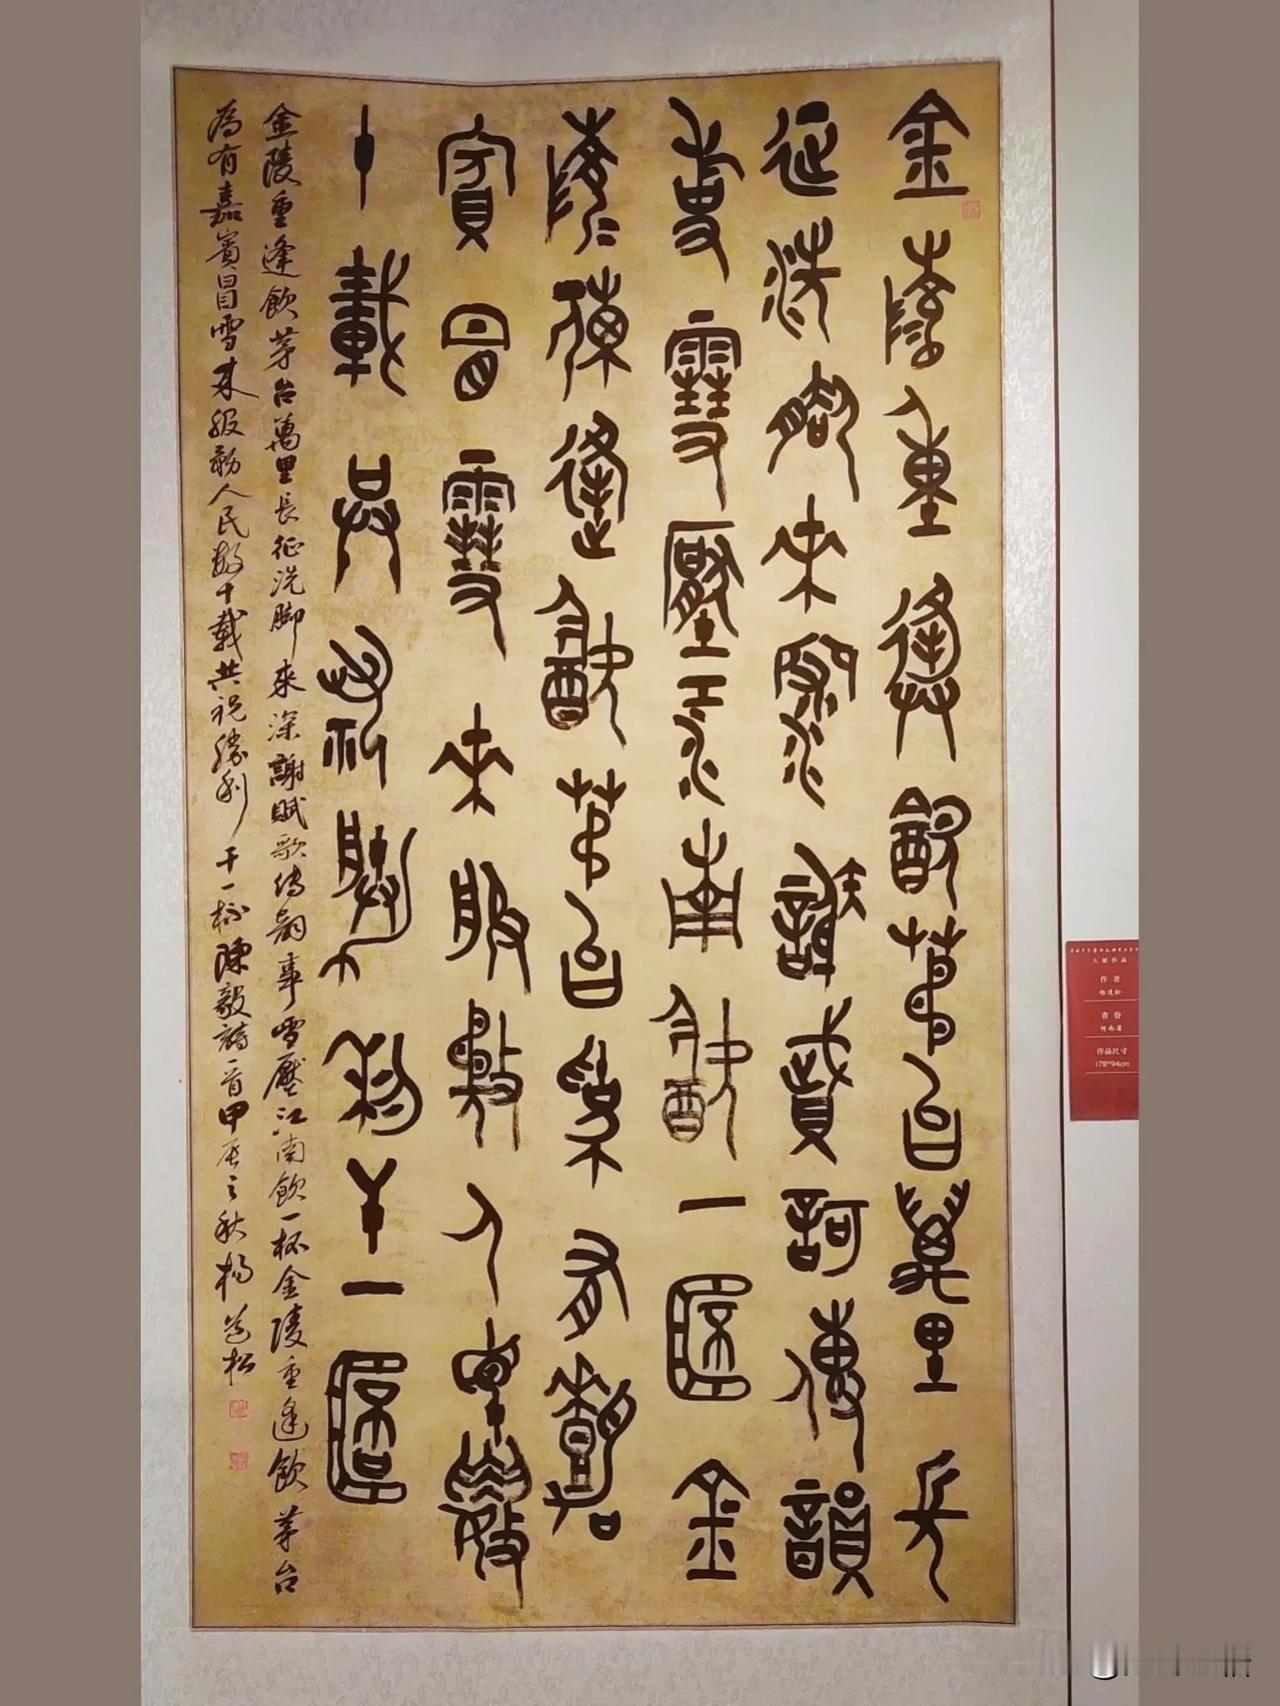 金陵重逢飲茅台萬里長
征洗腳來深謝賦歌傳韻
事雪壓江南飲一杯金
陵重逢飲茅台為有嘉
賓冒雪來服務人民數
十載共祝勝利干一杯
金陵重逢飲茅台萬里長征洗脚來深謝賦歌傳韻事雪壓江南飲一杯金陵重逢飲茅台
為有嘉賓冒雪來服務人民數十載共祝勝利干一杯陳毅詩一首甲辰之秋楊道松
入展作品
作者
杨道松
省份
河南省
作品尺寸
178*94cm